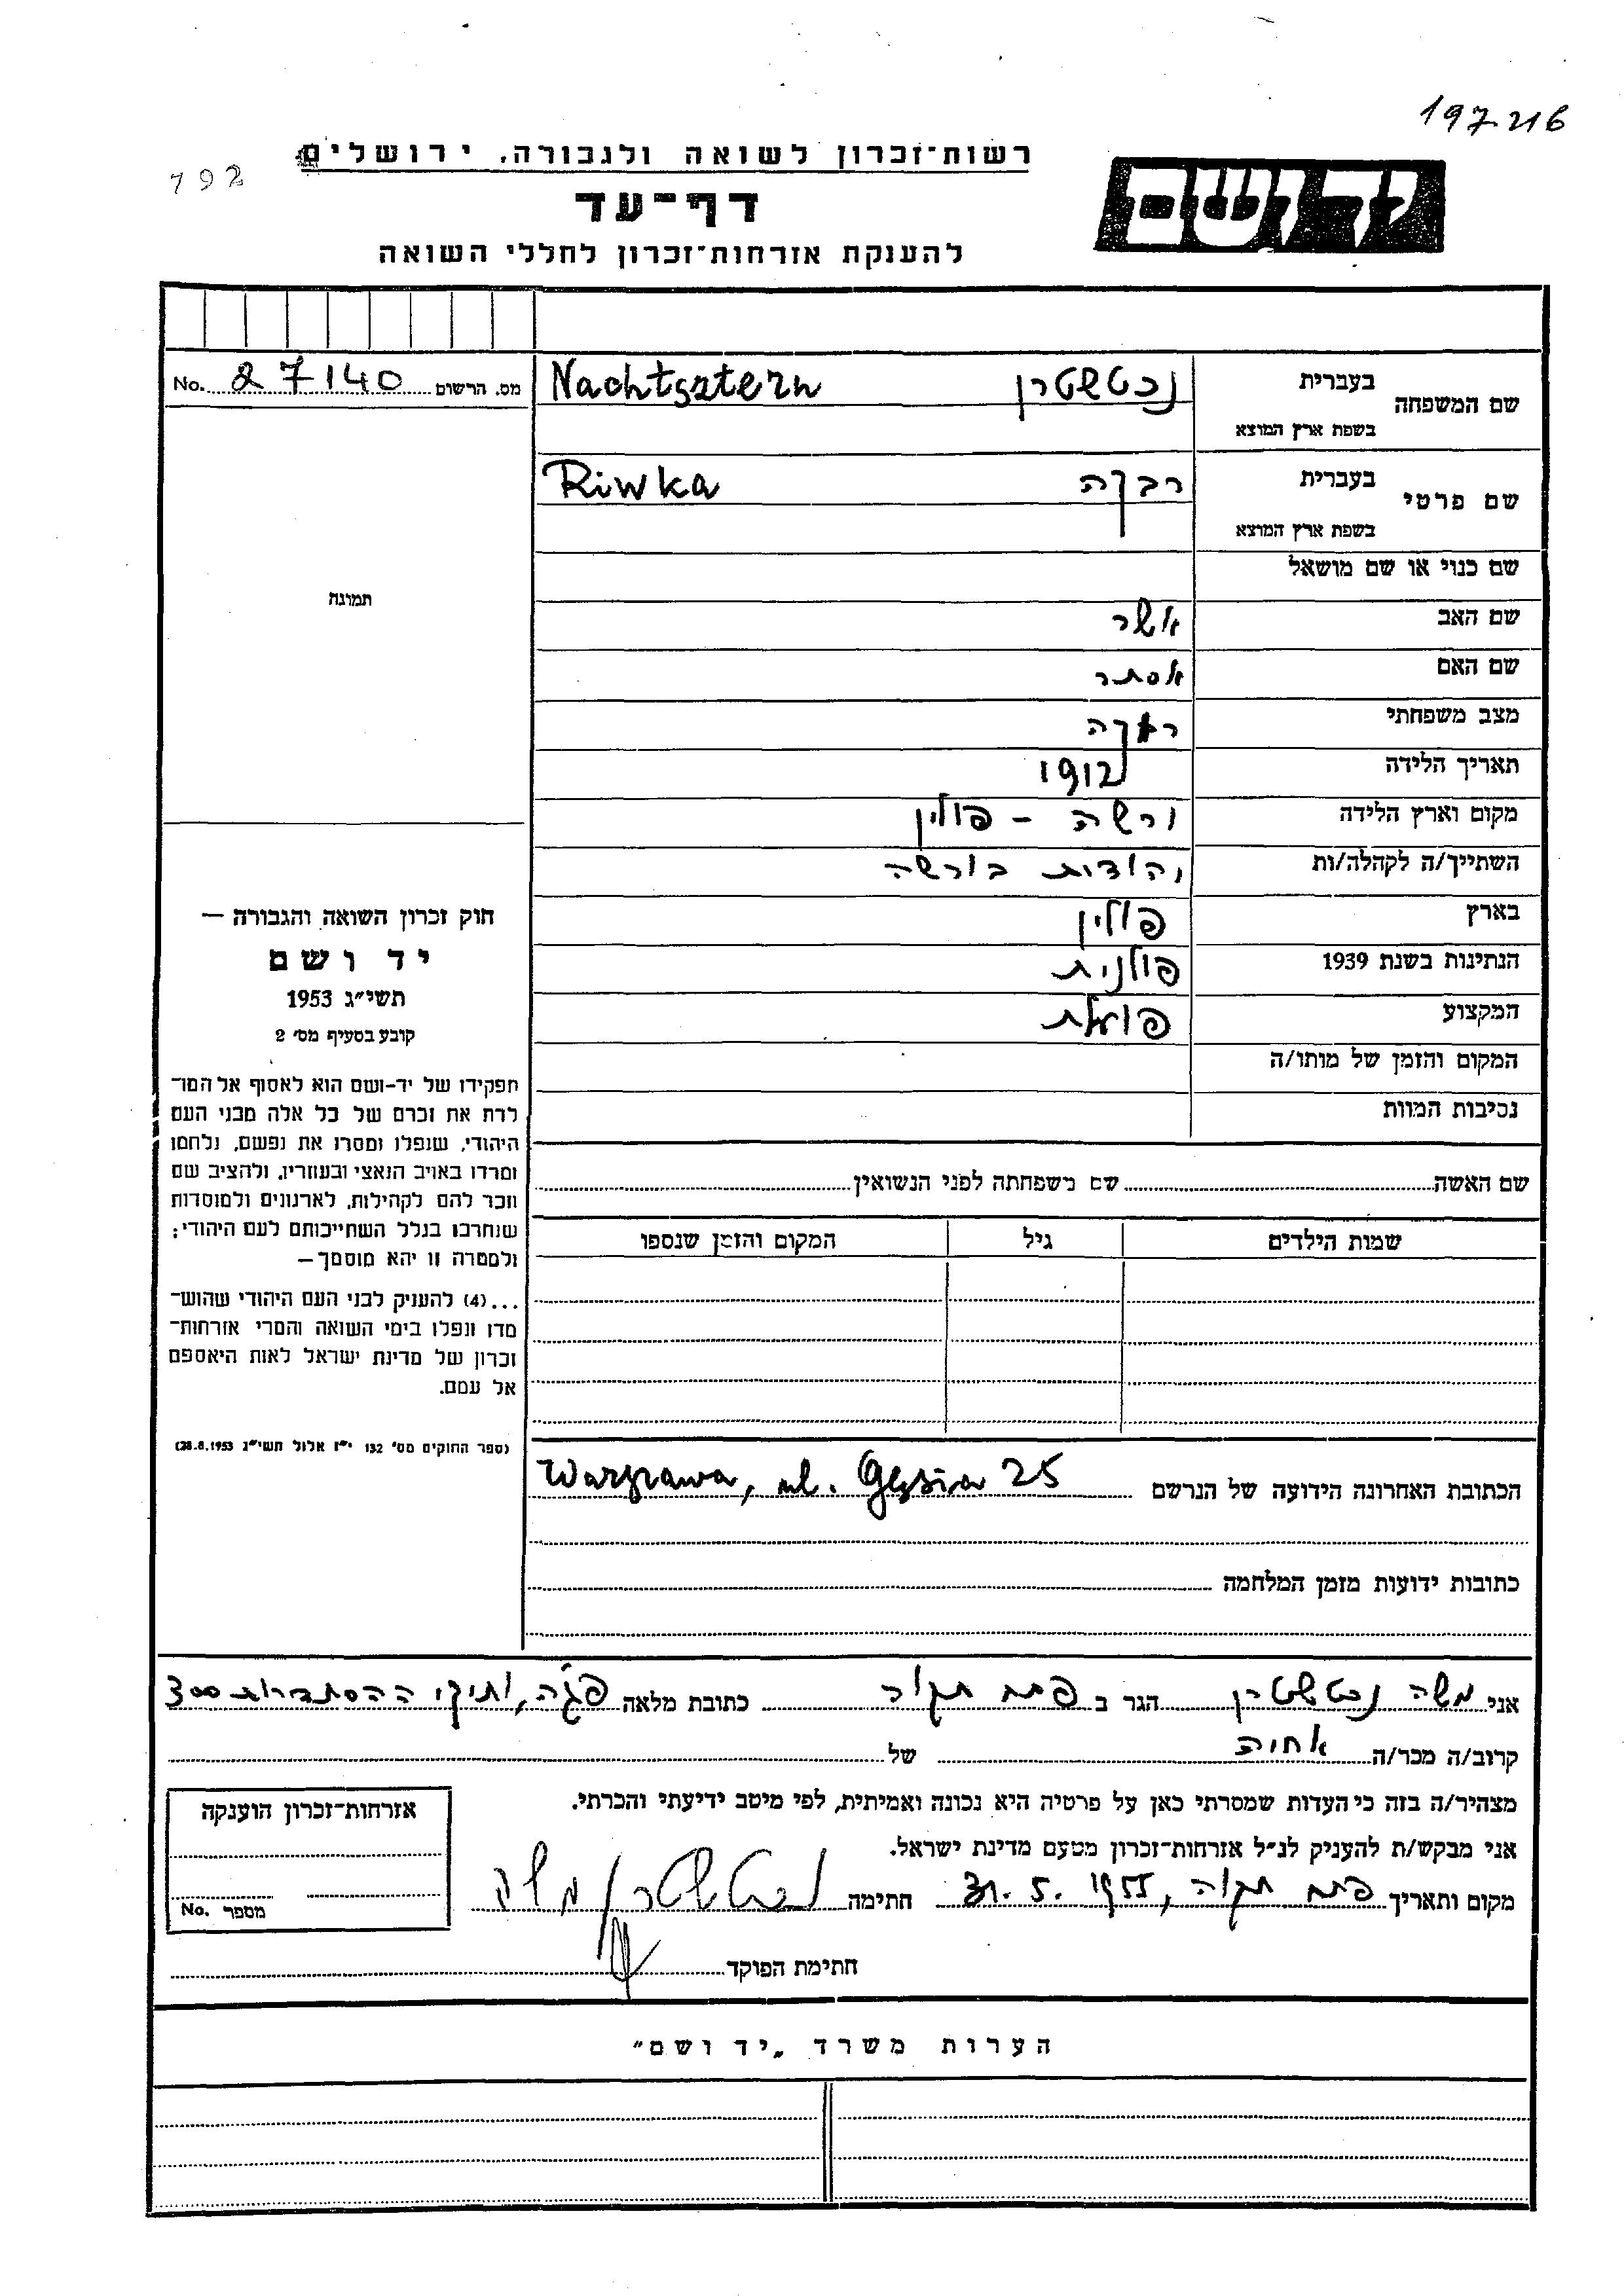 197216
792
רשות־זכרון לשואה ולגבורה, ירושלים
יד ושם
דף־עד
להענקת אזרחות־זכרון לחללי השואה
שם המשפחה בעברית נכטשטרן Nachtsztern
בשפת ארץ המוצא
מס. הרשום 27140 No.
שם פרטי בעברית רבקה Riwka
בשפת ארץ המוצא
שם כנוי או שם מושאל
תמונה
שם האב אשר
שם האם אסתר
מצב משפחתי רוקה
תאריך הלידה 1912
מקום וארץ הלידה ורשה – פולין
השתייך/ה לקהלה/ות יהודית בורשה
בארץ פולין
הנתינות בשנת 1939 פולנית
המקצוע פועלת
המקום והזמן של מותו/ה
נסיבות המוות
חוק זכרון השואה והגבורה —
יד ושם
תשי״ג 1953
קובע בסעיף מס׳ 2
תפקידו של יד-ושם הוא לאסוף אל המו־
לדת את זכרם של כל אלה מבני העם
היהודי, שנפלו ומסרו את נפשם, נלחמו
ומרדו באויב הנאצי ובעוזריו, ולהציב שם
וזכר להם לקהילות, לארגונים ולמוסדות
שנחרבו בגלל השתייכותם לעם היהודי;
ולמטרה זו יהא מוסמך—
...(4) להעניק לבני העם היהודי שהוש־
מדו ונפלו בימי השואה והמרי אזרחות־
זכרון של מדינת ישראל לאות היאספם
אל עמם.
(ספר החוקים מס׳ 132 י״ז אלול תשי״ג 28.8.1953)
שם האשה שם משפחתה לפני הנשואין
שמות הילדים גיל המקום והזמן שנספו
הכתובת האחרונה הידועה של הנרשם Warszawa, ul. Gęsia 25
כתובות ידועות מזמן המלחמה
אני משה נכטשטרן הגר ב פתח תקוה כתובת מלאה פג׳ה, ותיקי ההסתדרות 300
קרוב/ה מכר/ה אחות של
מצהיר/ה בזה כי העדות שמסרתי כאן על פרטיה היא נכונה ואמיתית, לפי מיטב ידיעתי והכרתי.
אני מבקש/ת להעניק לנ״ל אזרחות־זכרון מטעם מדינת ישראל.
מקום ותאריך פתח תקוה, 31.5.1955 חתימה נכטשטרן משה
חתימת הפוקד
אזרחות־זכרון הוענקה
מספר No.
הערות משרד „יד ושם״